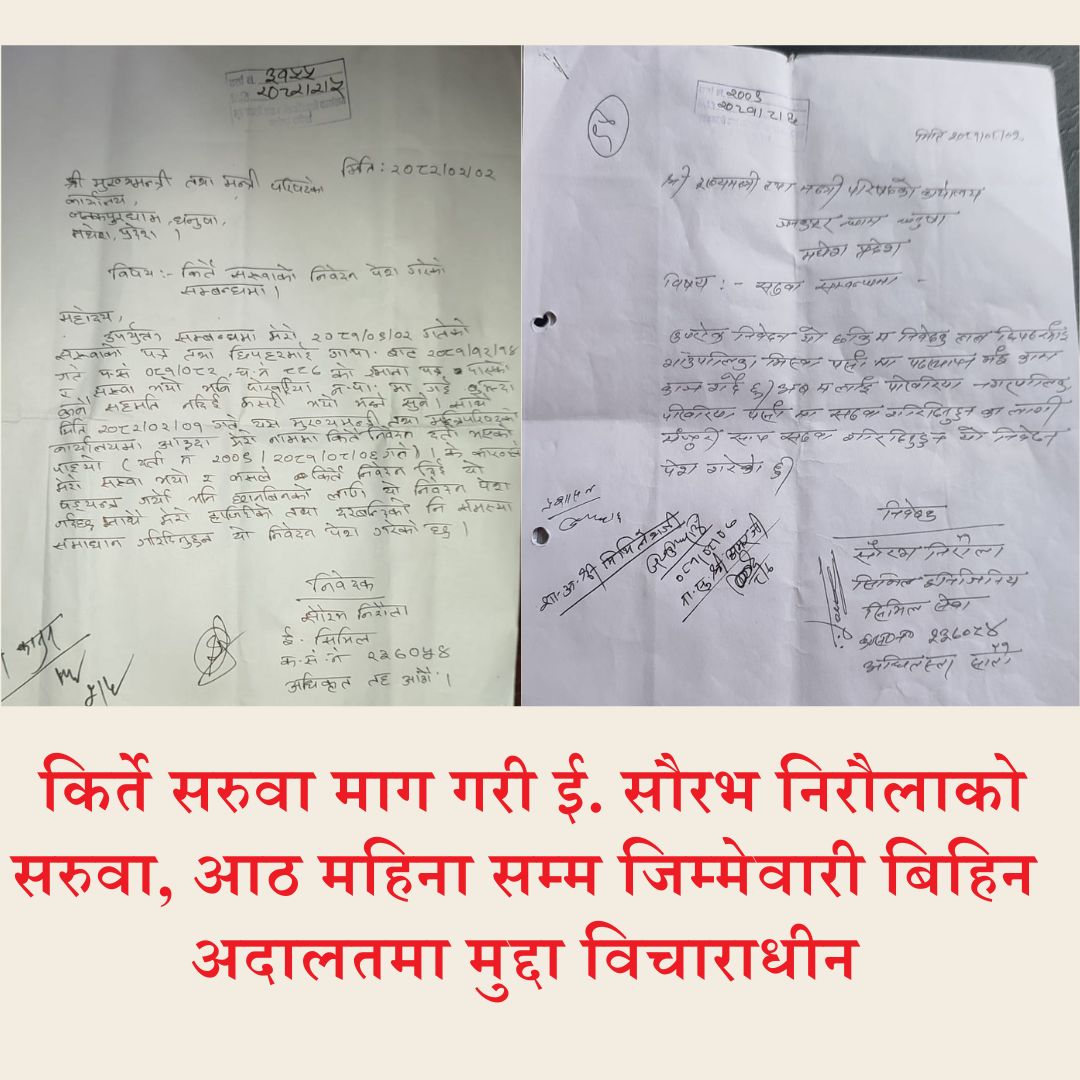 ३१५५
२०८२।२।५
मिति : २०८२/०२/०२
श्री मुख्यमन्त्री तथा मन्त्री परिषदको
कार्यालय,
जनकपुरधाम, धनुषा,
मधेश प्रदेश ।
विषय :- किर्ते सरुवाको निवेदन पेश गरेको
सम्बन्धमा ।
महोदय,
उपर्युक्त सम्बन्धमा मेरो २०८१/०९/०२ गतेको
सरुवाको पत्र तथा छिपहरमाई गा.पा. बाट २०८१/१२/१४
गते
सरुवा भयो भनि पोखरिया न.पा. मा जाँदा
सहमति नदिई कसरी भयो भन्ने
मिति २०८२/०२/०१ गते यस मुख्यमन्त्री तथा मन्त्रीपरिषदको
कार्यालयमा आउँदा मेरो नाममा किर्ते निवेदन दर्ता भएको
पाइयो (दर्ता नं २००९ / २०८१/०८/०६ गते) । के कारणले
मेरो सरुवा भयो र कसले किर्ते निवेदन दिई यो
षड्यन्त्र गर्यो भनि छानबिनको लागि यो निवेदन पेश
गर्दछु साथै मेरो हाजिरीको तथा दरबन्दीको नि समस्या
समाधान गरिदिनुहुन यो निवेदन पेश गरेको छु ।
निवेदक
सौरभ निरौला
ई. सिभिल
क.सं.नं २३६०५४
अधिकृत तह आठौं ।
कानुन
२००९
२०८१।८।६
मिति २०८१/०८/०६
श्री मुख्यमन्त्री तथा मन्त्री परिषदको कार्यालय
जनकपुर धाम धनुषा
मधेश प्रदेश
विषय :- सरुवा सम्बन्धमा -
निवेदन यो छ कि म निवेदक हाल छिपहरमाई
गाउँपालिका जिल्ला पर्सा मा पदस्थापन भई काम
काज गर्दै छु । अब मलाई पोखरिया नगरपालिका,
पोखरिया पर्सा मा सरुवा गरिदिनुहुन का लागी
सरुवा गरिदिनुहुन यो निवेदन
पेश गरेको छु ।
निवेदक
सौरभ निरौला
सिभिल इन्जिनियर
सिभिल सेवा
२३६०५४
प्रशासन
किर्ते सरुवा माग गरी ई. सौरभ निरौलाको
सरुवा, आठ महिना सम्म जिम्मेवारी बिहिन
अदालतमा मुद्दा विचाराधीन